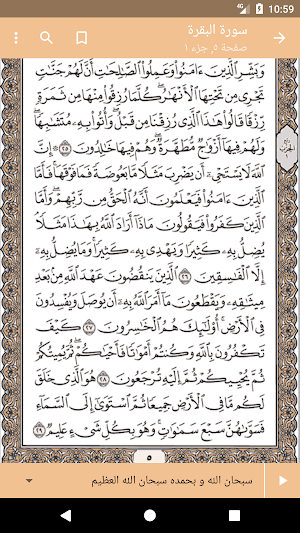 4G 10:59
سورة البقرة
صفحة ٥, جزء ١
وَبَشِّرِ الَّذِينَ ءَامَنُوا وَعَمِلُوا الصَّالِحَاتِ أَنَّ لَهُمْ جَنَّاتٍ
تَجْرِي مِن تَحْتِهَا الْأَنْهَارُ كُلَّمَا رُزِقُوا مِنْهَا مِن ثَمَرَةٍ
رِّزْقًا قَالُوا هَٰذَا الَّذِي رُزِقْنَا مِن قَبْلُ وَأُتُوا بِهِ مُتَشَابِهًا
وَلَهُمْ فِيهَا أَزْوَاجٌ مُّطَهَّرَةٌ وَهُمْ فِيهَا خَالِدُونَ ٢٥ إِنَّ
اللَّهَ لَا يَسْتَحْيِي أَن يَضْرِبَ مَثَلًا مَّا بَعُوضَةً فَمَا فَوْقَهَا فَأَمَّا
الَّذِينَ ءَامَنُوا فَيَعْلَمُونَ أَنَّهُ الْحَقُّ مِن رَّبِّهِمْ وَأَمَّا
الَّذِينَ كَفَرُوا فَيَقُولُونَ مَاذَا أَرَادَ اللَّهُ بِهَٰذَا مَثَلًا
يُضِلُّ بِهِ كَثِيرًا وَيَهْدِي بِهِ كَثِيرًا وَمَا يُضِلُّ بِهِ
إِلَّا الْفَاسِقِينَ ٢٦ الَّذِينَ يَنقُضُونَ عَهْدَ اللَّهِ مِن بَعْدِ
مِيثَاقِهِ وَيَقْطَعُونَ مَا أَمَرَ اللَّهُ بِهِ أَن يُوصَلَ وَيُفْسِدُونَ
فِي الْأَرْضِ أُولَٰئِكَ هُمُ الْخَاسِرُونَ ٢٧ كَيْفَ
تَكْفُرُونَ بِاللَّهِ وَكُنتُمْ أَمْوَاتًا فَأَحْيَاكُمْ ثُمَّ يُمِيتُكُمْ
ثُمَّ يُحْيِيكُمْ ثُمَّ إِلَيْهِ تُرْجَعُونَ ٢٨ هُوَ الَّذِي خَلَقَ
لَكُم مَّا فِي الْأَرْضِ جَمِيعًا ثُمَّ اسْتَوَىٰ إِلَى السَّمَاءِ
فَسَوَّاهُنَّ سَبْعَ سَمَاوَاتٍ وَهُوَ بِكُلِّ شَيْءٍ عَلِيمٌ ٢٩
٥
سبحان الله و بحمده سبحان الله العظيم